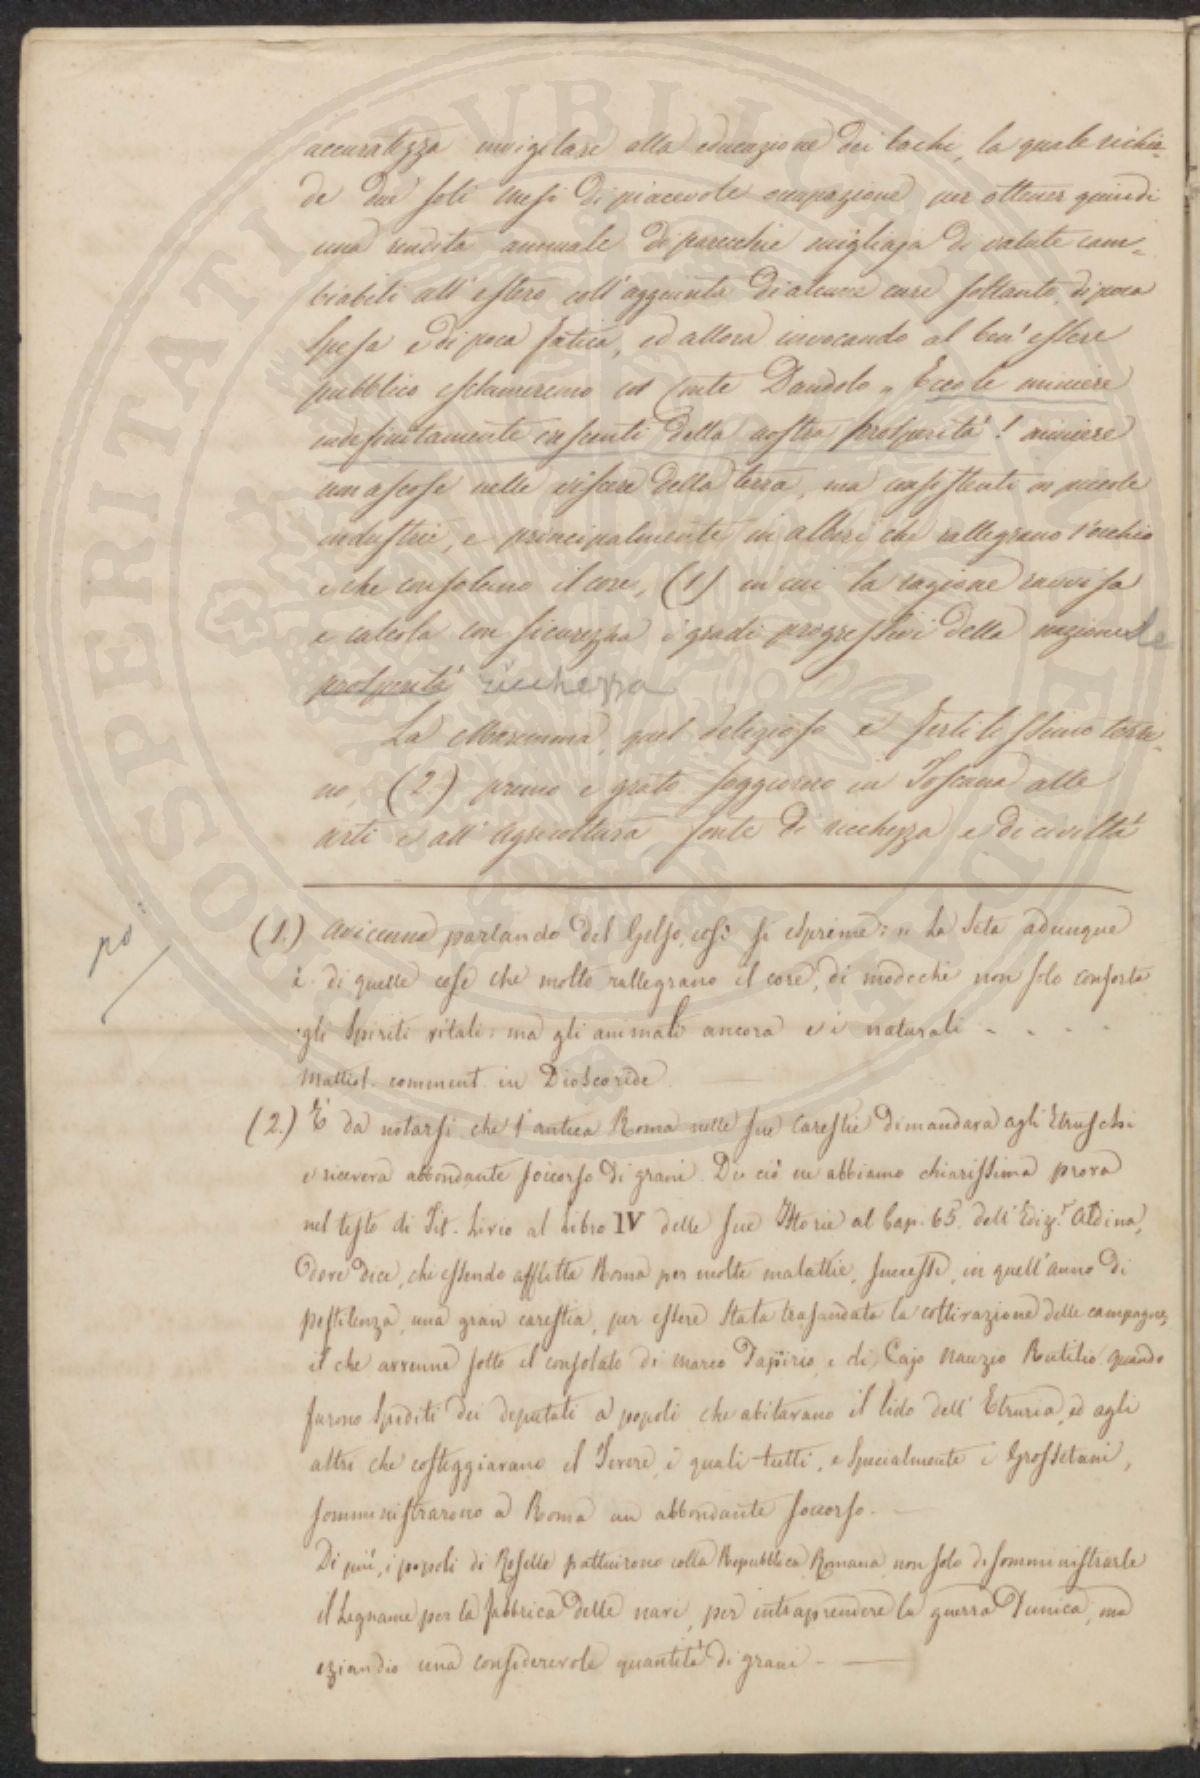 accuratezza invigilare alla educazione dei bachi, la quale richie-
de due soli mesi di piacevole occupazione per ottener quindi
una rendita annuale di parecchie migliaja di valute cam-
biabili all'estero coll'aggiunta di alcune cure soltanto, di poca
spesa e di poca fatica, ed allora invocando al ben'essere
pubblico esclameremo col Conte Dandolo „ Ecco le miniere
indefinitamente crescenti della nostra prosperità! miniere
non ascose nelle viscere della terra, ma consistenti in piccole
industrie, e principalmente in alberi che rallegrano l'occhio
e che consolano il core, (1) in cui la ragione ravvisa
e calcola con sicurezza i gradi progressivi della nazionale
prosperità ricchezza
La Maremma, quel delizioso e fertilissimo terre-
no, (2) primo e grato soggiorno in Toscana alle
arti e all'agricoltura, fonte di ricchezza e di civiltà
po
(1.) Avicenna parlando del Gelso, così si esprime: „ La Seta adunque
è di quelle cose che molto rallegrano il core, di modochè non solo conforta
gli Spiriti vitali: ma gli animali ancora e i naturali - - - -
Mattiol. comment. in Dioscoride.
(2.) È da notarsi che l'antica Roma nelle sue carestie dimandava agli Etruschi
e riceveva abbondante soccorso di grani. Di ciò ne abbiamo chiarissima prova
nel testo di Tit. Livio al Libro IV delle sue Istorie al Cap. 65. dell'Ediz.e Aldina,
dove dice, che essendo afflitta Roma per molte malattie, successe, in quell'anno di
pestilenza, una gran carestia, per essere stata trasandata la coltivazione delle campagne,
il che avvenne sotto il consolato di Marco Papirio, e di Cajo Nauzio Rutilio quando
furono spediti dei deputati a' popoli che abitavano il lido dell'Etruria, ed agli
altri che costeggiavano il Tevere, i quali tutti, e specialmente i Grossetani,
somministrarono a Roma un abbondante soccorso. —
Di più, i popoli di Roselle pattuirono colla Repubblica Romana, non solo di somministrarle
il Legname per la fabbrica delle navi, per intraprendere la guerra Punica, ma
eziandio una considerevole quantità di grani - —
PROSPERITATI PUBLICAE AUGENDAE